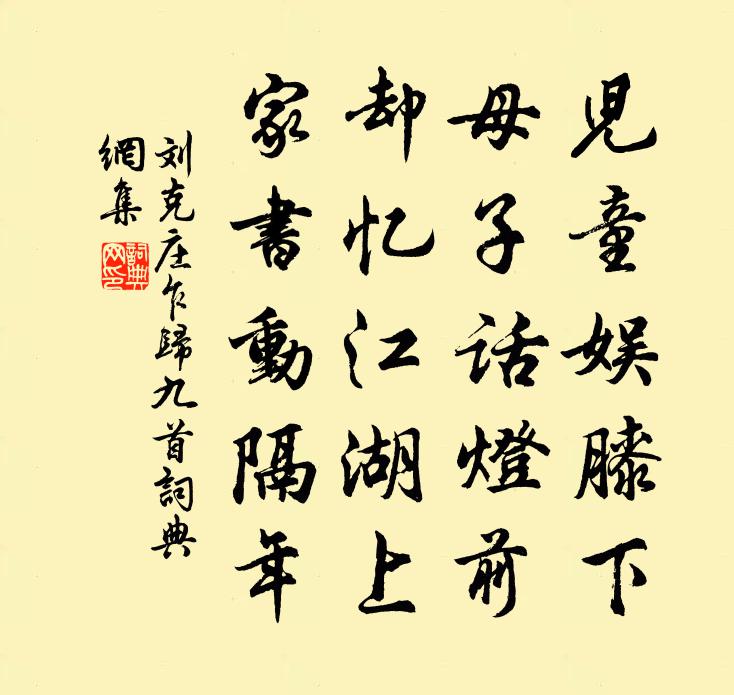 児童娱膝下
母子话燈前
却忆江湖上
家書動隔年
刘克庄乍歸九首詞典
網集
詞典
网印